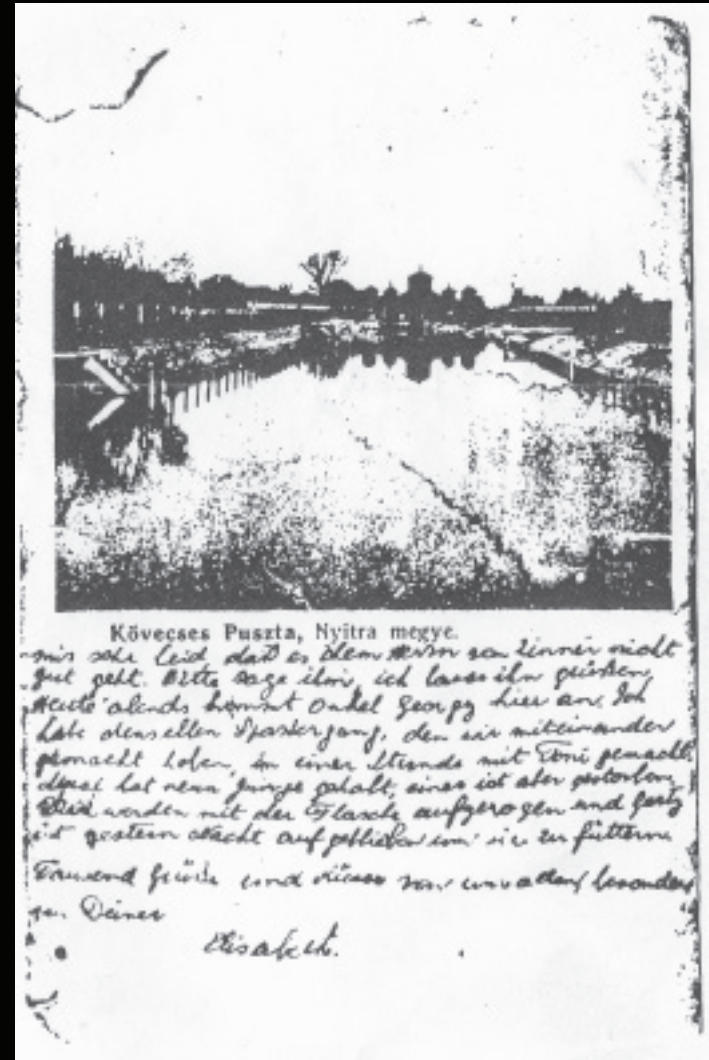 Kövecses Puszta, Nyitra megye.
mir sehr leid daß es dem Herrn von Zinner nicht
gut geht. Bitte sage ihm, ich lasse ihn grüßen.
Heute abends kommt Onkel Georg hier an. Ich
habe denselben Spaziergang, den wir miteinander
gemacht haben, in einer Stunde mit Toni gemacht.
hat neun Junge gehabt, eines ist aber gestorben.
werden mit der Flasche aufgezogen und
ist gestern Nacht auf geblieben um sie zu füttern.
Tausend Grüße und Küsse von uns allen, besonders
von Deiner
Elisabeth.